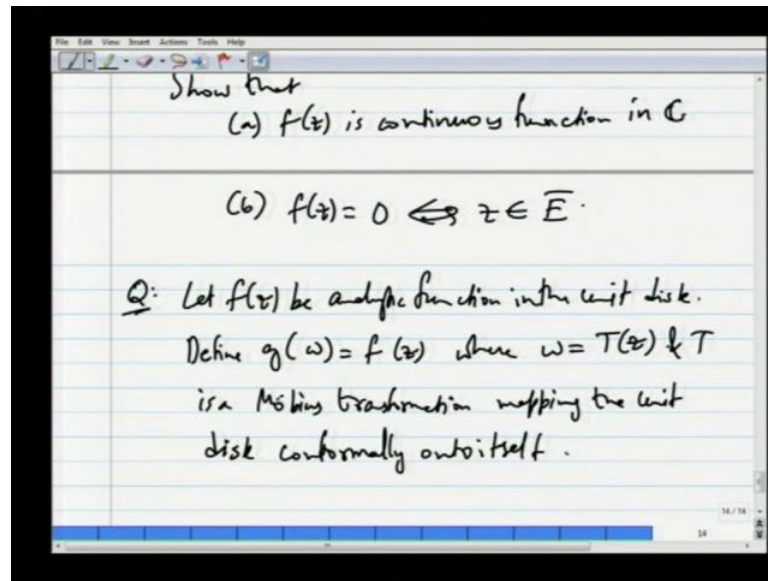 File Edit View Insert Actions Tools Help
Show that
(a) f(z) is continuous function in ℂ
(b) f(z) = 0 ⇔ z ∈ E̅.
Q: Let f(z) be analytic function in the unit disk.
Define g(ω) = f(z) where ω = T(z) & T
is a Möbius transformation mapping the unit
disk conformally onto itself.
14 / 14
14